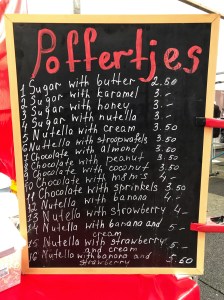 Poffertjes
1 Sugar with butter 2.50
2 Sugar with karamel 3.-
3 Sugar with honey 3.-
4 Sugar with nutella 3.-
5 Nutella with cream 3.50
6 Nutella with stroopwafels 3.50
7 Chocolate with almond 3.50
8 Chocolate with peanut 3.50
9 Chocolate with coconut 3.50
10 Chocolate with m&m's 4.-
11 Chocolate with sprinkels 3.50
12 Nutella with banana 4.-
13 Nutella with strawberry 4.-
14 Nutella with banana and
cream 5.-
15 Nutella with strawberry
and cream 5.-
16 Nutella with banana and
strawberry 5.50